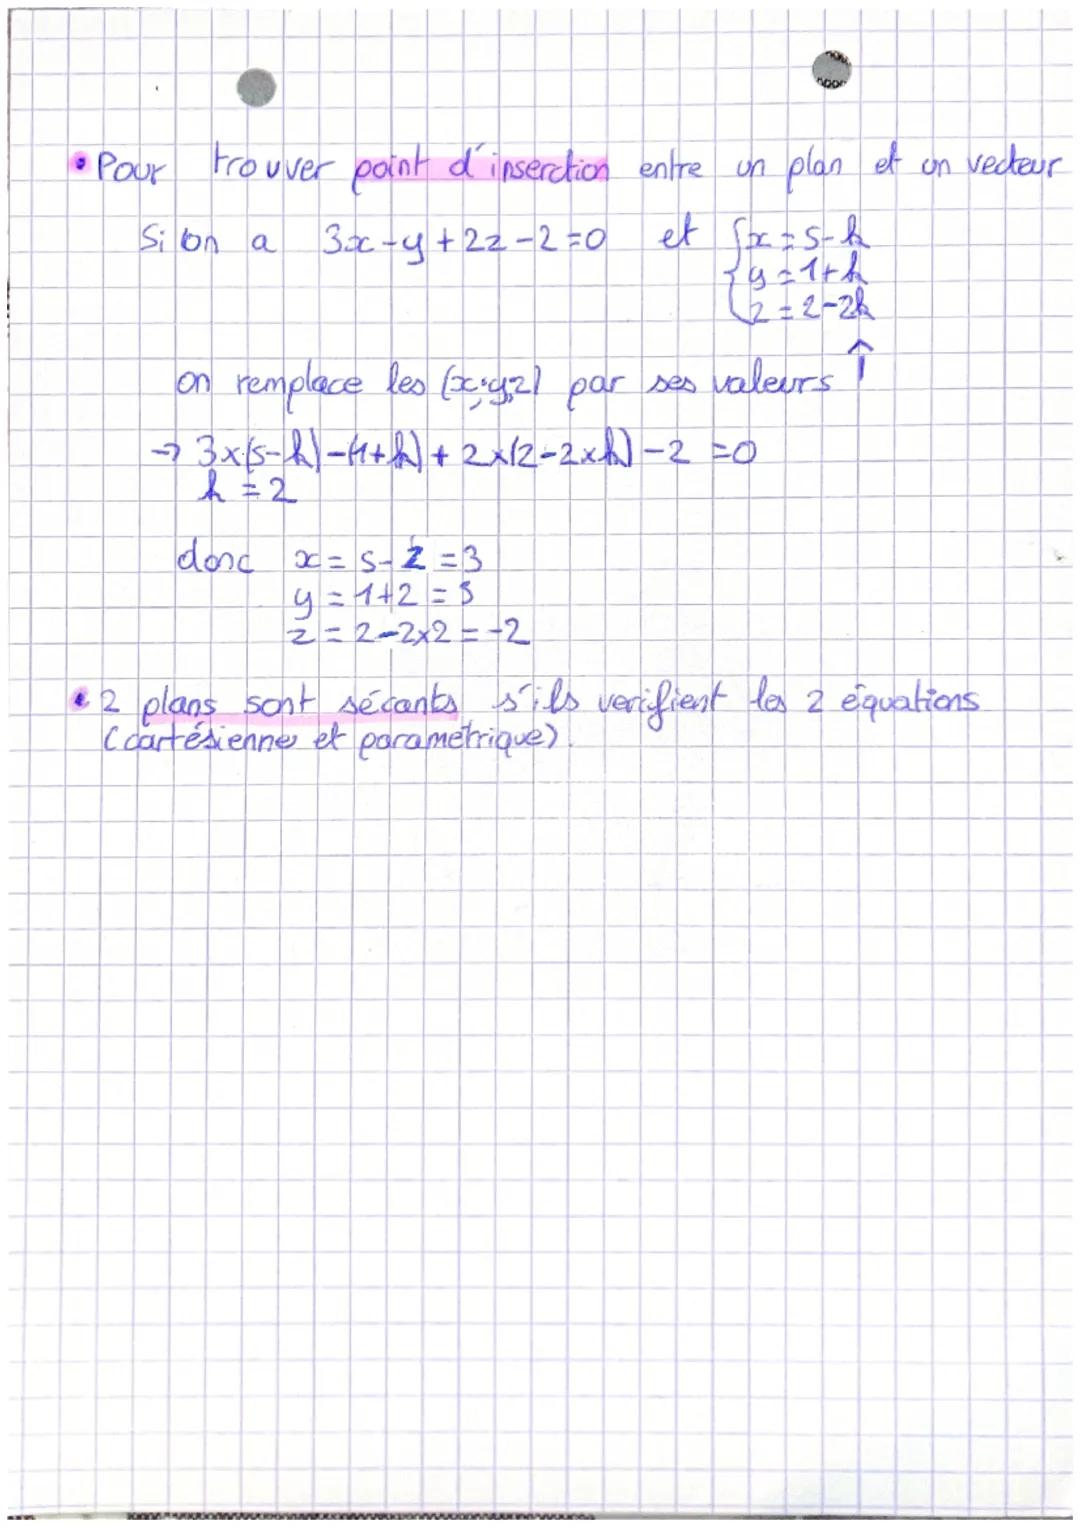 • Pour trouver point d'inserction entre un plan et un vecteur
Si on a 3x-y+2z-2=0 et { x=5-k
y=1+k
z=2-2k
↑
on remplace les (x;y;z) par ses valeurs
→ 3×(5-k)-(1+k)+2×(2-2×k)-2=0
k=2
donc x=5-2=3
y=1+2=3
z=2-2×2=-2
• 2 plans sont sécants s'ils verifient les 2 équations
(cartésienne et parametrique).